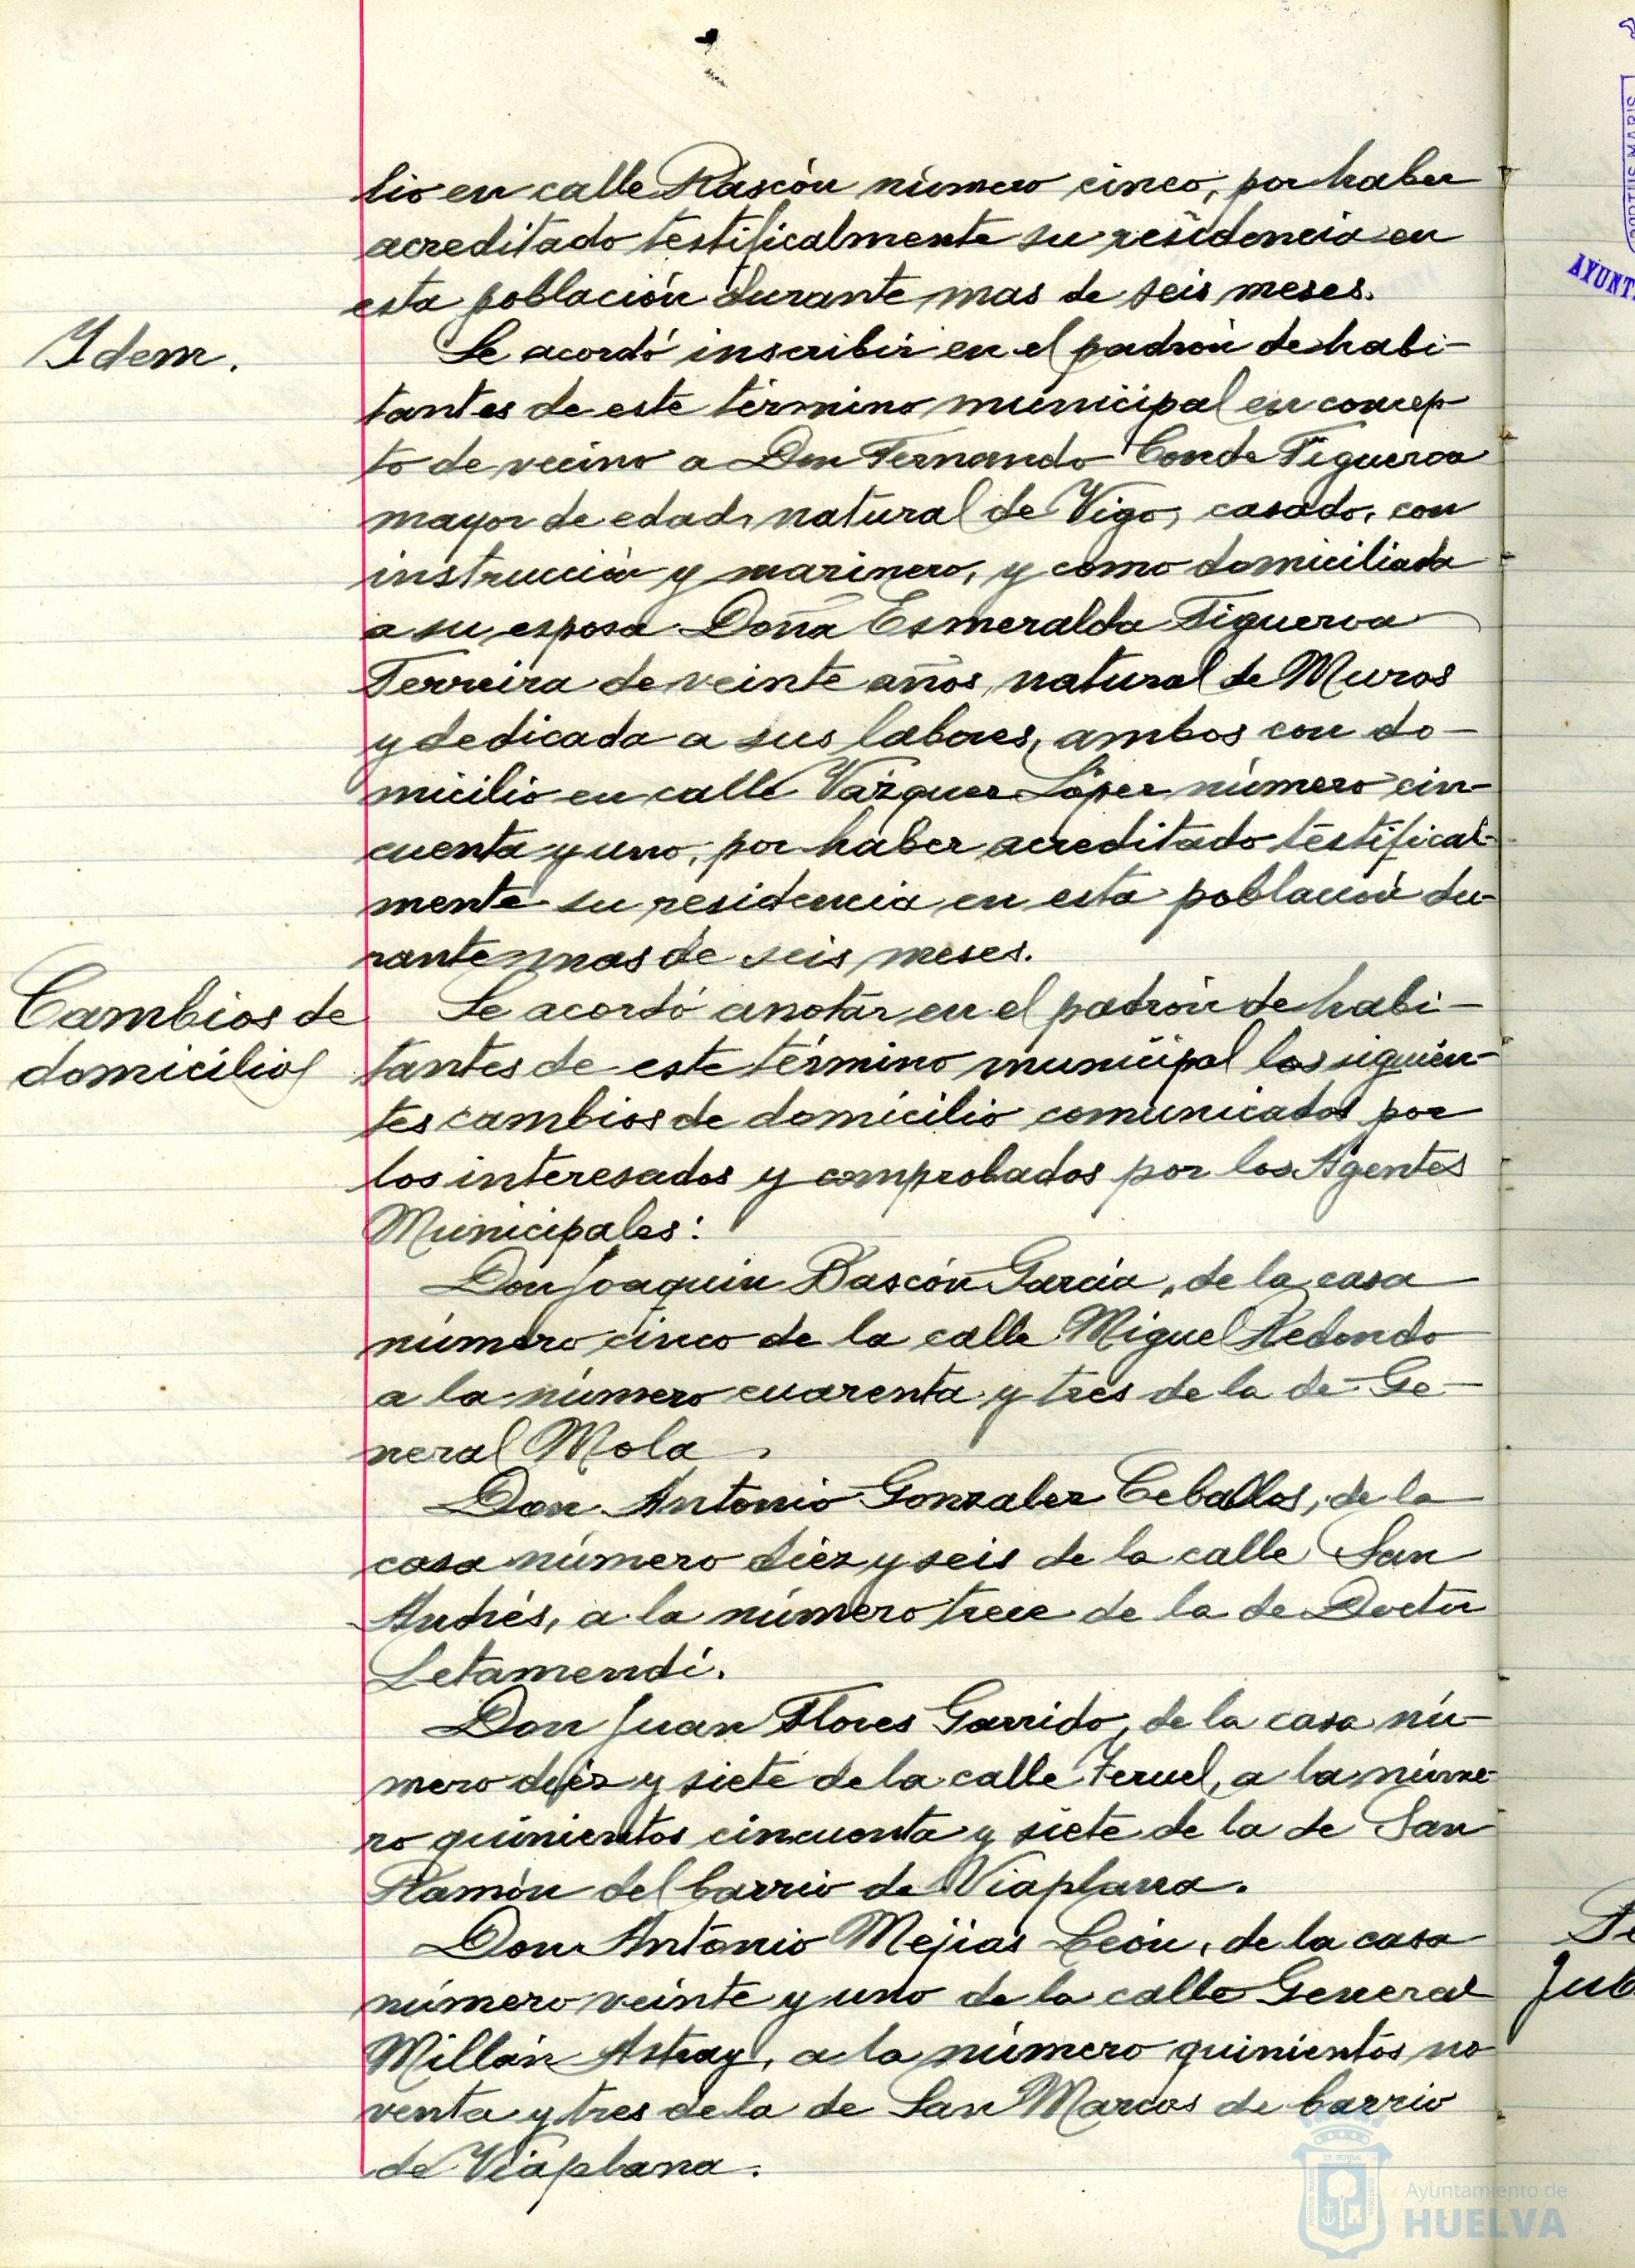 lio en calle Rascón número cinco, por haber
acreditado testificalmente su residencia en
esta población durante mas de seis meses.
Idem.
Se acordó inscribir en el padrón de habi-
tantes de este término municipal en concep-
to de vecino a Don Fernando Conde Figueroa
mayor de edad, natural de Vigo, casado, con
instrucción y marinero, y como domiciliada
a su esposa Doña Esmeralda Figueroa
Ferreira de veinte años, natural de Muros
y dedicada a sus labores, ambos con do-
micilio en calle Vázquez López número cin-
cuenta y uno, por haber acreditado testifical-
mente su residencia en esta población du-
rante mas de seis meses.
Cambios de
domicilio
Se acordó anotar en el padrón de habi-
tantes de este término municipal los siguien-
tes cambios de domicilio comunicados por
los interesados y comprobados por los Agentes
Municipales:
Don Joaquin Bascón García, de la casa
número cinco de la calle Miguel Redondo
a la número cuarenta y tres de la de Ge-
neral Mola.
Don Antonio Gonzalez Ceballos, de la
casa número diez y seis de la calle San
Andrés, a la número trece de la de Doctor
Letamendi.
Don Juan Flores Garrido, de la casa nú-
mero diez y siete de la calle Teruel, a la núme-
ro quinientos cincuenta y siete de la de San
Ramón del barrio de Viaplana.
Don Antonio Mejias León, de la casa
número veinte y uno de la calle General
Millán Astray, a la número quinientos no
venta y tres de la de San Marcos de barrio
de Viaplana.
Ayuntamiento de
HUELVA